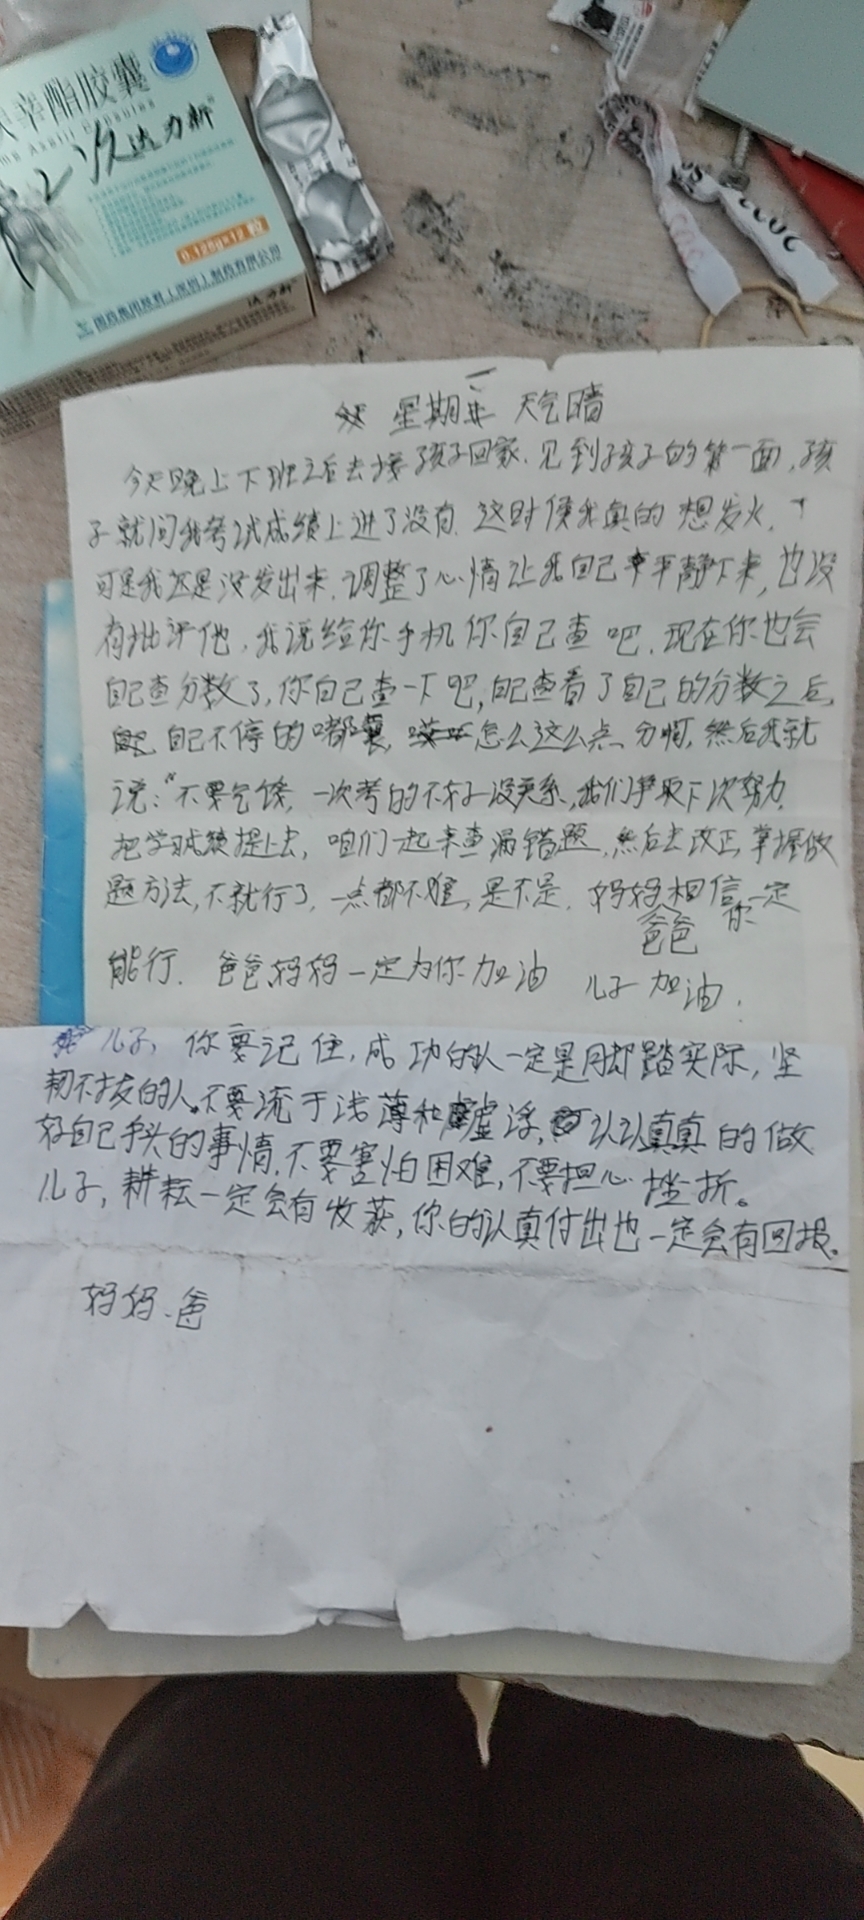 辛酯胶囊
me Axetil Capsules
2次达力新
0.125g×12粒
国药集团致君(深圳)制药有限公司
达力新
星期一 天气晴
今天晚上下班之后去接孩子回家.见到孩子的第一面,孩
子就问我考试成绩上进了没有.这时候我真的想发火,
可是我还是没发出来,调整了心情让我自己平静下来,也没
有批评他,我说给你手机你自己查吧.现在你也会
自己查分数了,你自己查一下吧,自己查看了自己的分数之后,
自己不停的嘟囊,怎么这么点分啊,然后我就
说:“不要气馁,一次考的不好没关系,我们争取下次努力,
把学习成绩提上去,咱们一起来查漏错题,然后去改正,掌握做
题方法,不就行了,一点都不难,是不是.妈妈爸爸相信你一定
能行.爸爸妈妈一定为你加油 儿子加油.
儿子,你要记住,成功的人一定是脚踏实际,坚
韧不拔的人.不要流于浅薄和虚浮,认认真真的做
好自己手头的事情,不要害怕困难,不要担心挫折。
儿子,耕耘一定会有收获,你的认真付出也一定会有回报.
妈妈.爸